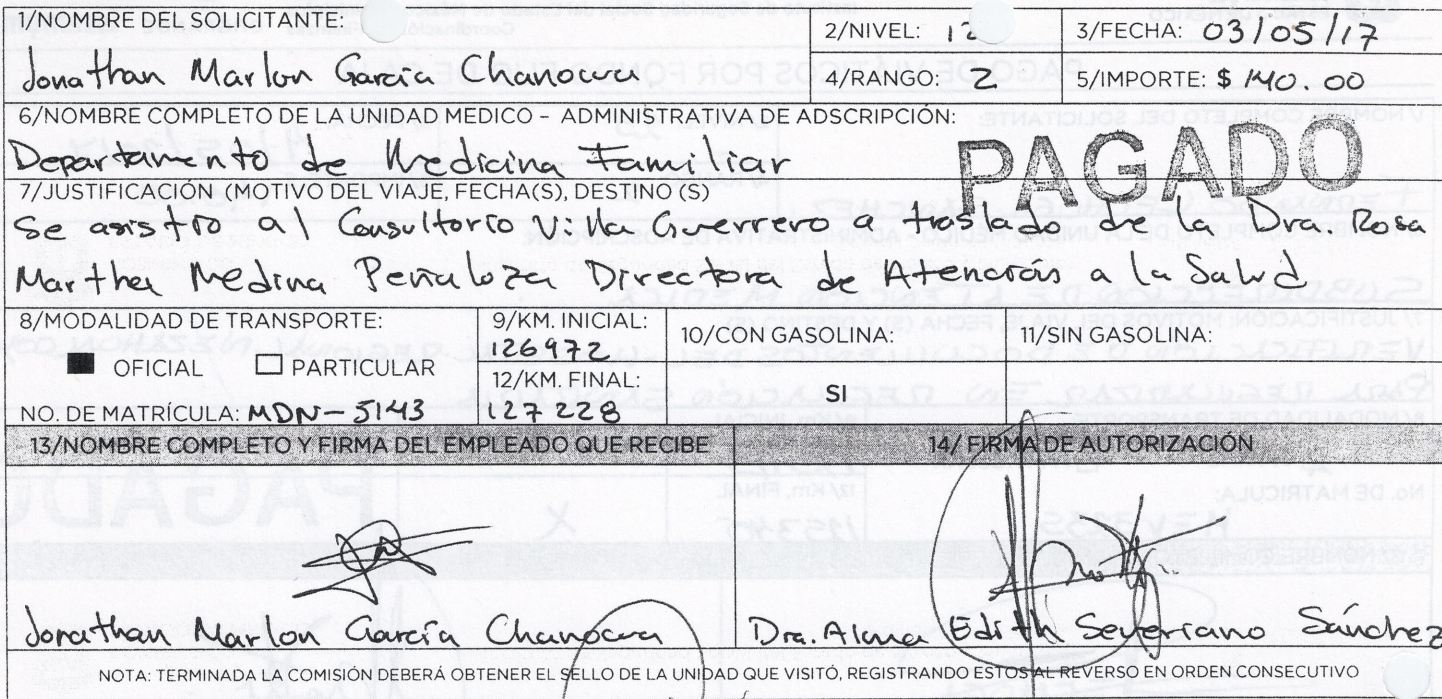 1/NOMBRE DEL SOLICITANTE:
Jonathan Marlon García Chanocua
2/NIVEL: 12
3/FECHA: 03/05/17
4/RANGO: 2
5/IMPORTE: $ 140.00
6/NOMBRE COMPLETO DE LA UNIDAD MEDICO - ADMINISTRATIVA DE ADSCRIPCIÓN:
Departamento de Medicina Familiar
PAGADO
7/JUSTIFICACIÓN (MOTIVO DEL VIAJE, FECHA(S), DESTINO (S)
Se asistio al Consultorio Villa Guerrero a traslado a la Dra. Rosa
Martha Medina Peñaloza Directora de Atención a la Salud
8/MODALIDAD DE TRANSPORTE:
OFICIAL PARTICULAR
NO. DE MATRÍCULA: MDN-5143
9/KM. INICIAL:
126972
12/KM. FINAL:
127228
10/CON GASOLINA:
SI
11/SIN GASOLINA:
13/NOMBRE COMPLETO Y FIRMA DEL EMPLEADO QUE RECIBE
14/ FIRMA DE AUTORIZACIÓN
Jonathan Marlon García Chanocua
Dra. Alma Edith Severiano Sánchez
NOTA: TERMINADA LA COMISIÓN DEBERÁ OBTENER EL SELLO DE LA UNIDAD QUE VISITÓ, REGISTRANDO ESTOS AL REVERSO EN ORDEN CONSECUTIVO